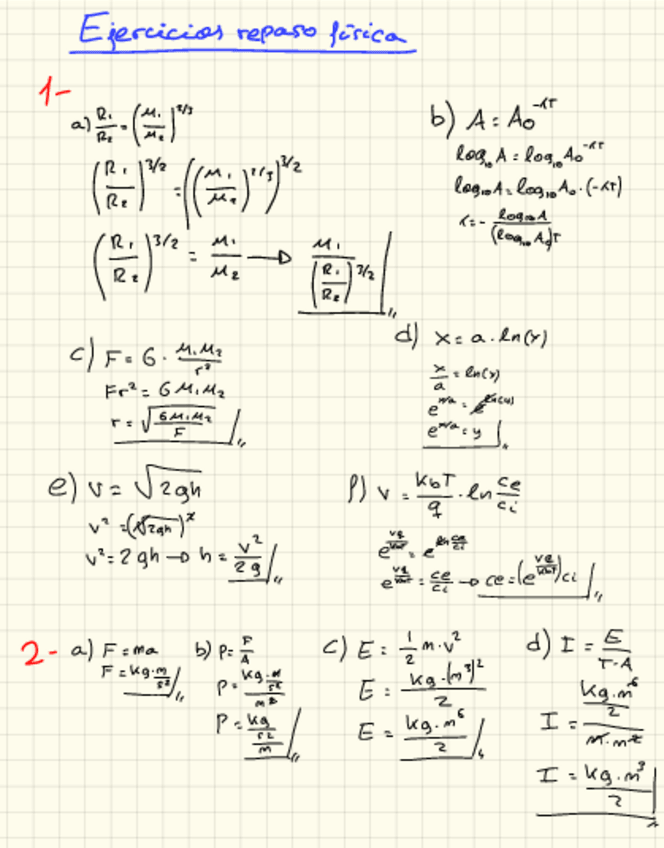 Ejercicios reparo física
1-
a) R₁/R₂ = (M₁/M₂)^2/3
(R₁/R₂)^3/2 = ((M₁/M₂)^2/3)^3/2
(R₁/R₂)^3/2 = M₁/M₂ → M₁/(R₁/R₂)^3/2
b) A = A₀^-λτ
log₁₀ A = log₁₀ A₀^-λτ
log₁₀ A = log₁₀ A₀ · (-λτ)
λ = - log₁₀ A/(log₁₀ A₀)τ
c) F = G · M₁M₂/r²
Fr² = G M₁M₂
r = √(G M₁M₂/F)
d) x = a · ln(y)
x/a = ln(y)
e^x/a = e^ln(y)
e^x/a = y
e) v = √2gh
v² = (√2gh)²
v² = 2gh → h = v²/2g
f) v = KbT/q · ln ce/ci
e^vq/KbT = e^ln ce/ci
e^vq/KbT = ce/ci → ce = (e^vq/KbT) ci
2-
a) F = ma
F = kg·m/s²
b) P = F/A
P = kg·m/s²/m²
P = kg/s²/m
c) E = 1/2 m·v²
E = kg·(m³)²/2
E = kg·m⁶/2
d) I = E/T·A
I = kg·m⁶/2/m·m²
I = kg·m³/2